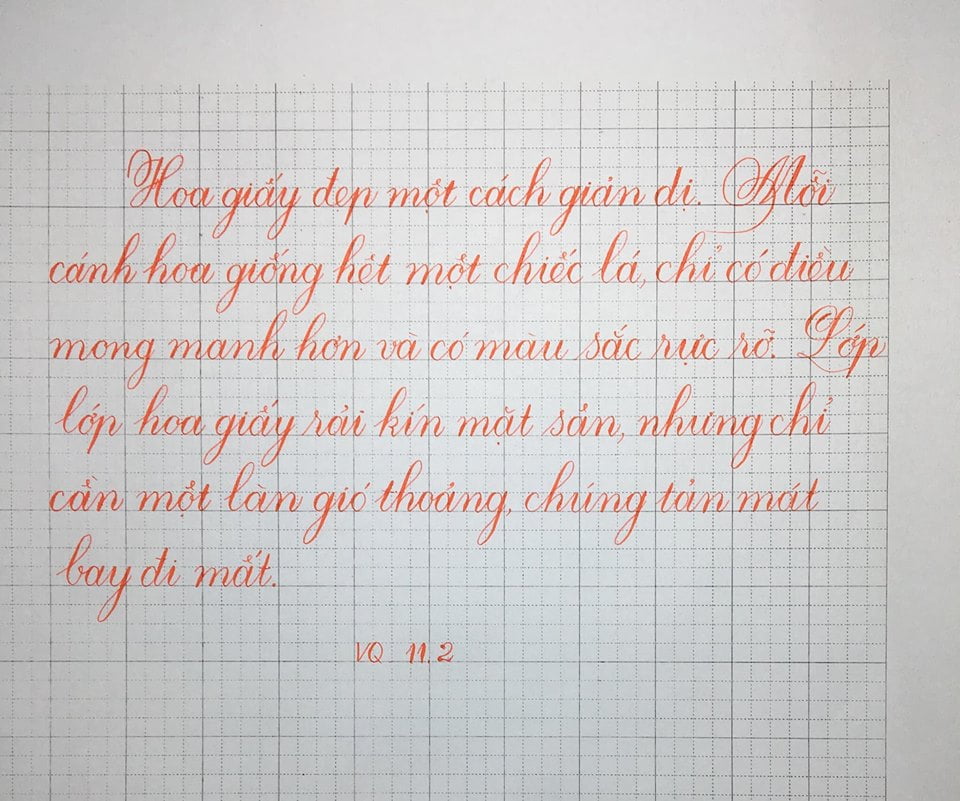 Hoa giấy đẹp một cách giản dị. Mỗi
cánh hoa giống hệt một chiếc lá, chỉ có điều
mong manh hơn và có màu sắc rực rỡ. Lớp
lớp hoa giấy rải kín mặt sân, nhưng chỉ
cần một làn gió thoảng, chúng tản mát
bay đi mất.
VQ 11.2